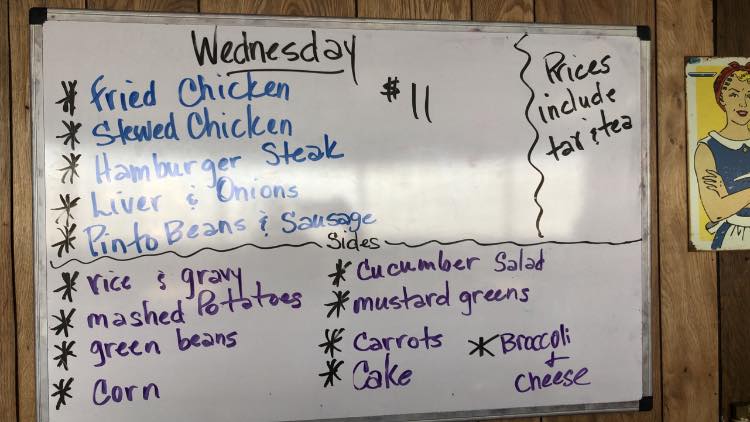 Wednesday
* Fried Chicken
$11
* Stewed Chicken
* Hamburger Steak
* Liver & Onions
* Pinto Beans & Sausage
Prices
include
tax & tea
Sides
* rice & gravy
* mashed Potatoes
* green beans
* Corn
* Cucumber Salad
* mustard greens
* Carrots
* Cake
* Broccoli
+
cheese